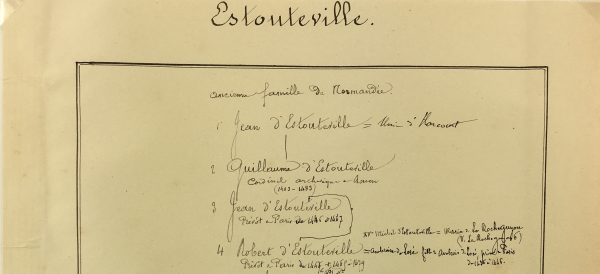 Estouteville.
ancienne famille de Normandie
1 Jean d'Estouteville = d'Harcourt
2 Guillaume d'Estouteville
Cardinal archevêque de Rouen
(1403-1483)
3 Jean d'Estouteville
Prévôt de Paris de 1446 à 1447
Michel d'Estouteville = Marie de la Rocheguyon
4 Robert d'Estouteville = Ambroise de Loré fille d'Ambroise de Loré prévôt de Paris
Prévôt de Paris de
de 1436 à 1446.